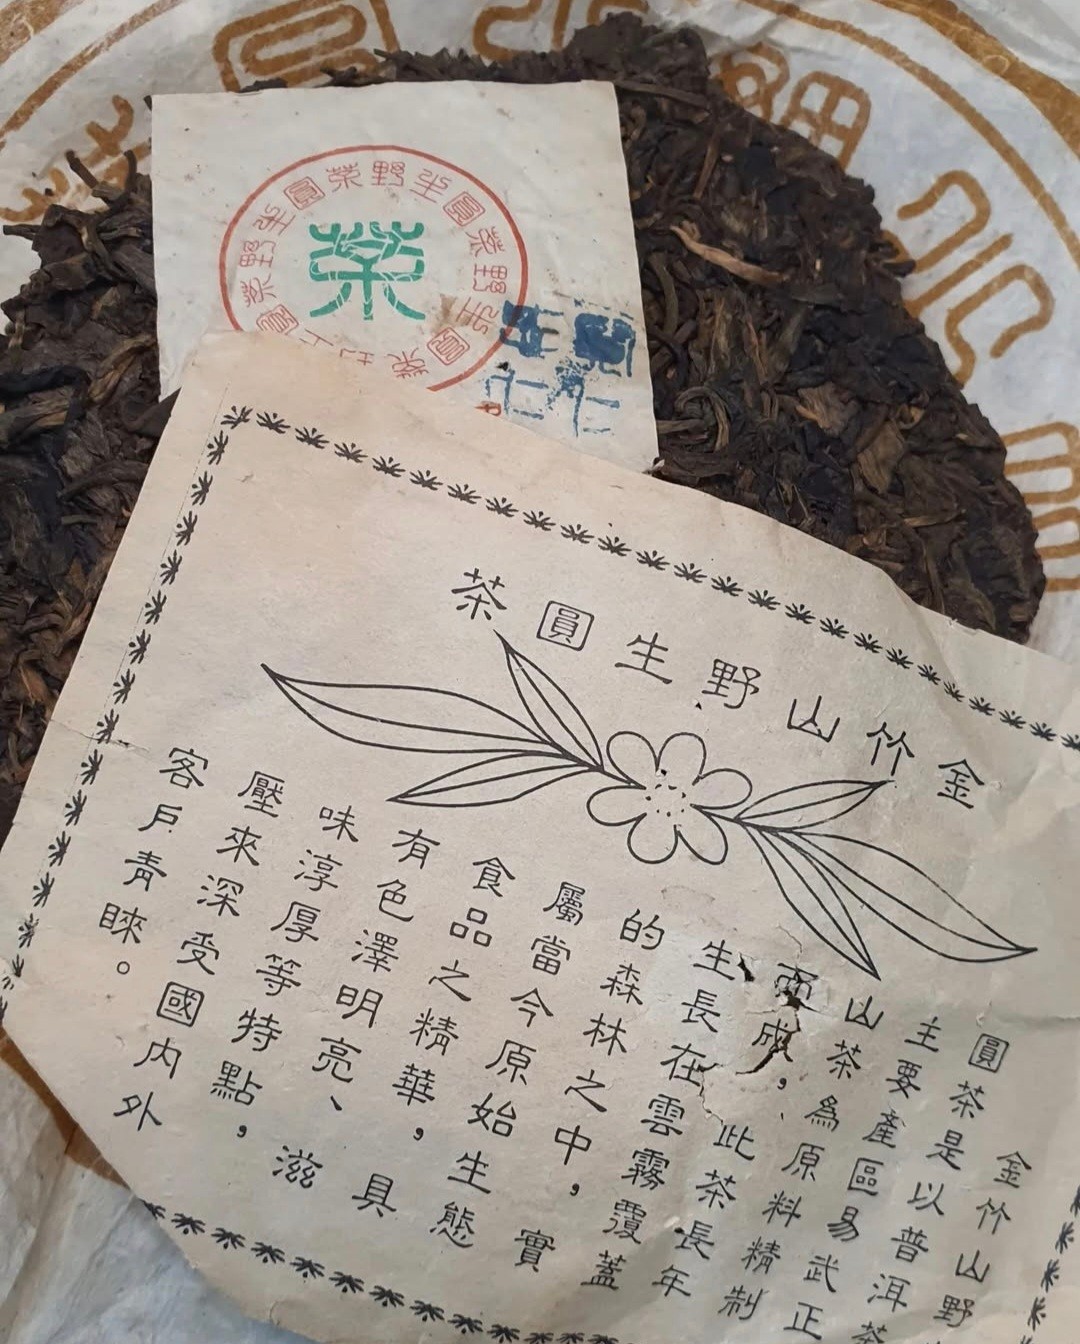 茶野生圓茶野生圓茶野生圓茶
茶
金竹山野生圓茶
金竹山野
圓茶是以普洱茶
主要產區易武正
山茶爲原料精制
而成，此茶長年
生長在雲霧覆蓋
的森林之中，實
屬當今原始生態
食品之精華，具
有色澤明亮、滋
味淳厚等特點，
壓來深受國内外
客戶青睞。